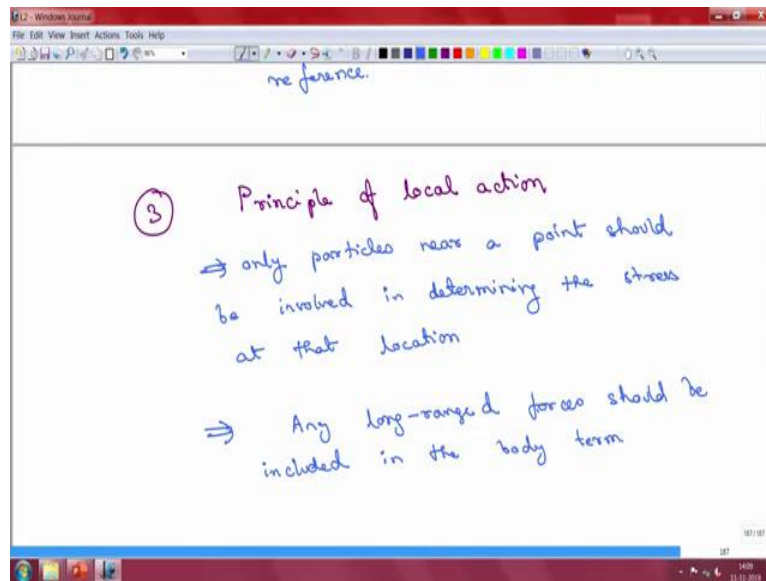 L2 - Windows Journal
File Edit View Insert Actions Tools Help
reference.
3 Principle of local action
⇒ only particles near a point should
be involved in determining the stress
at that location
⇒ Any long-ranged forces should be
included in the body term
187/187
187
14:09
13-11-2019